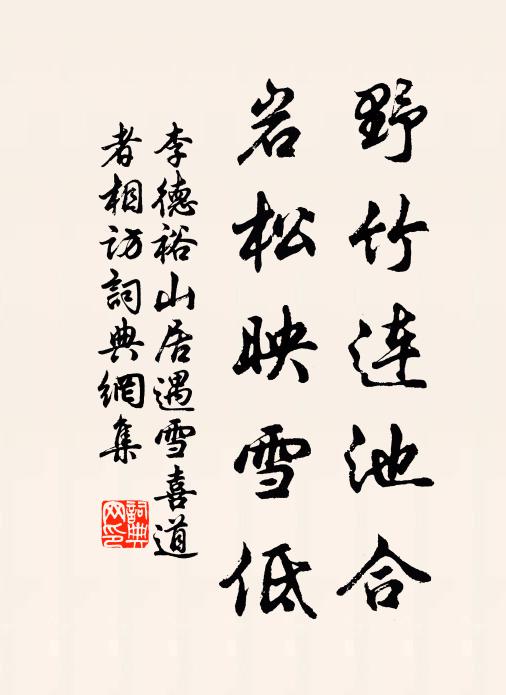 野竹连池合
岩松映雪低
李德裕山居遇雪喜道
者相访詞典網集
詞典
网印